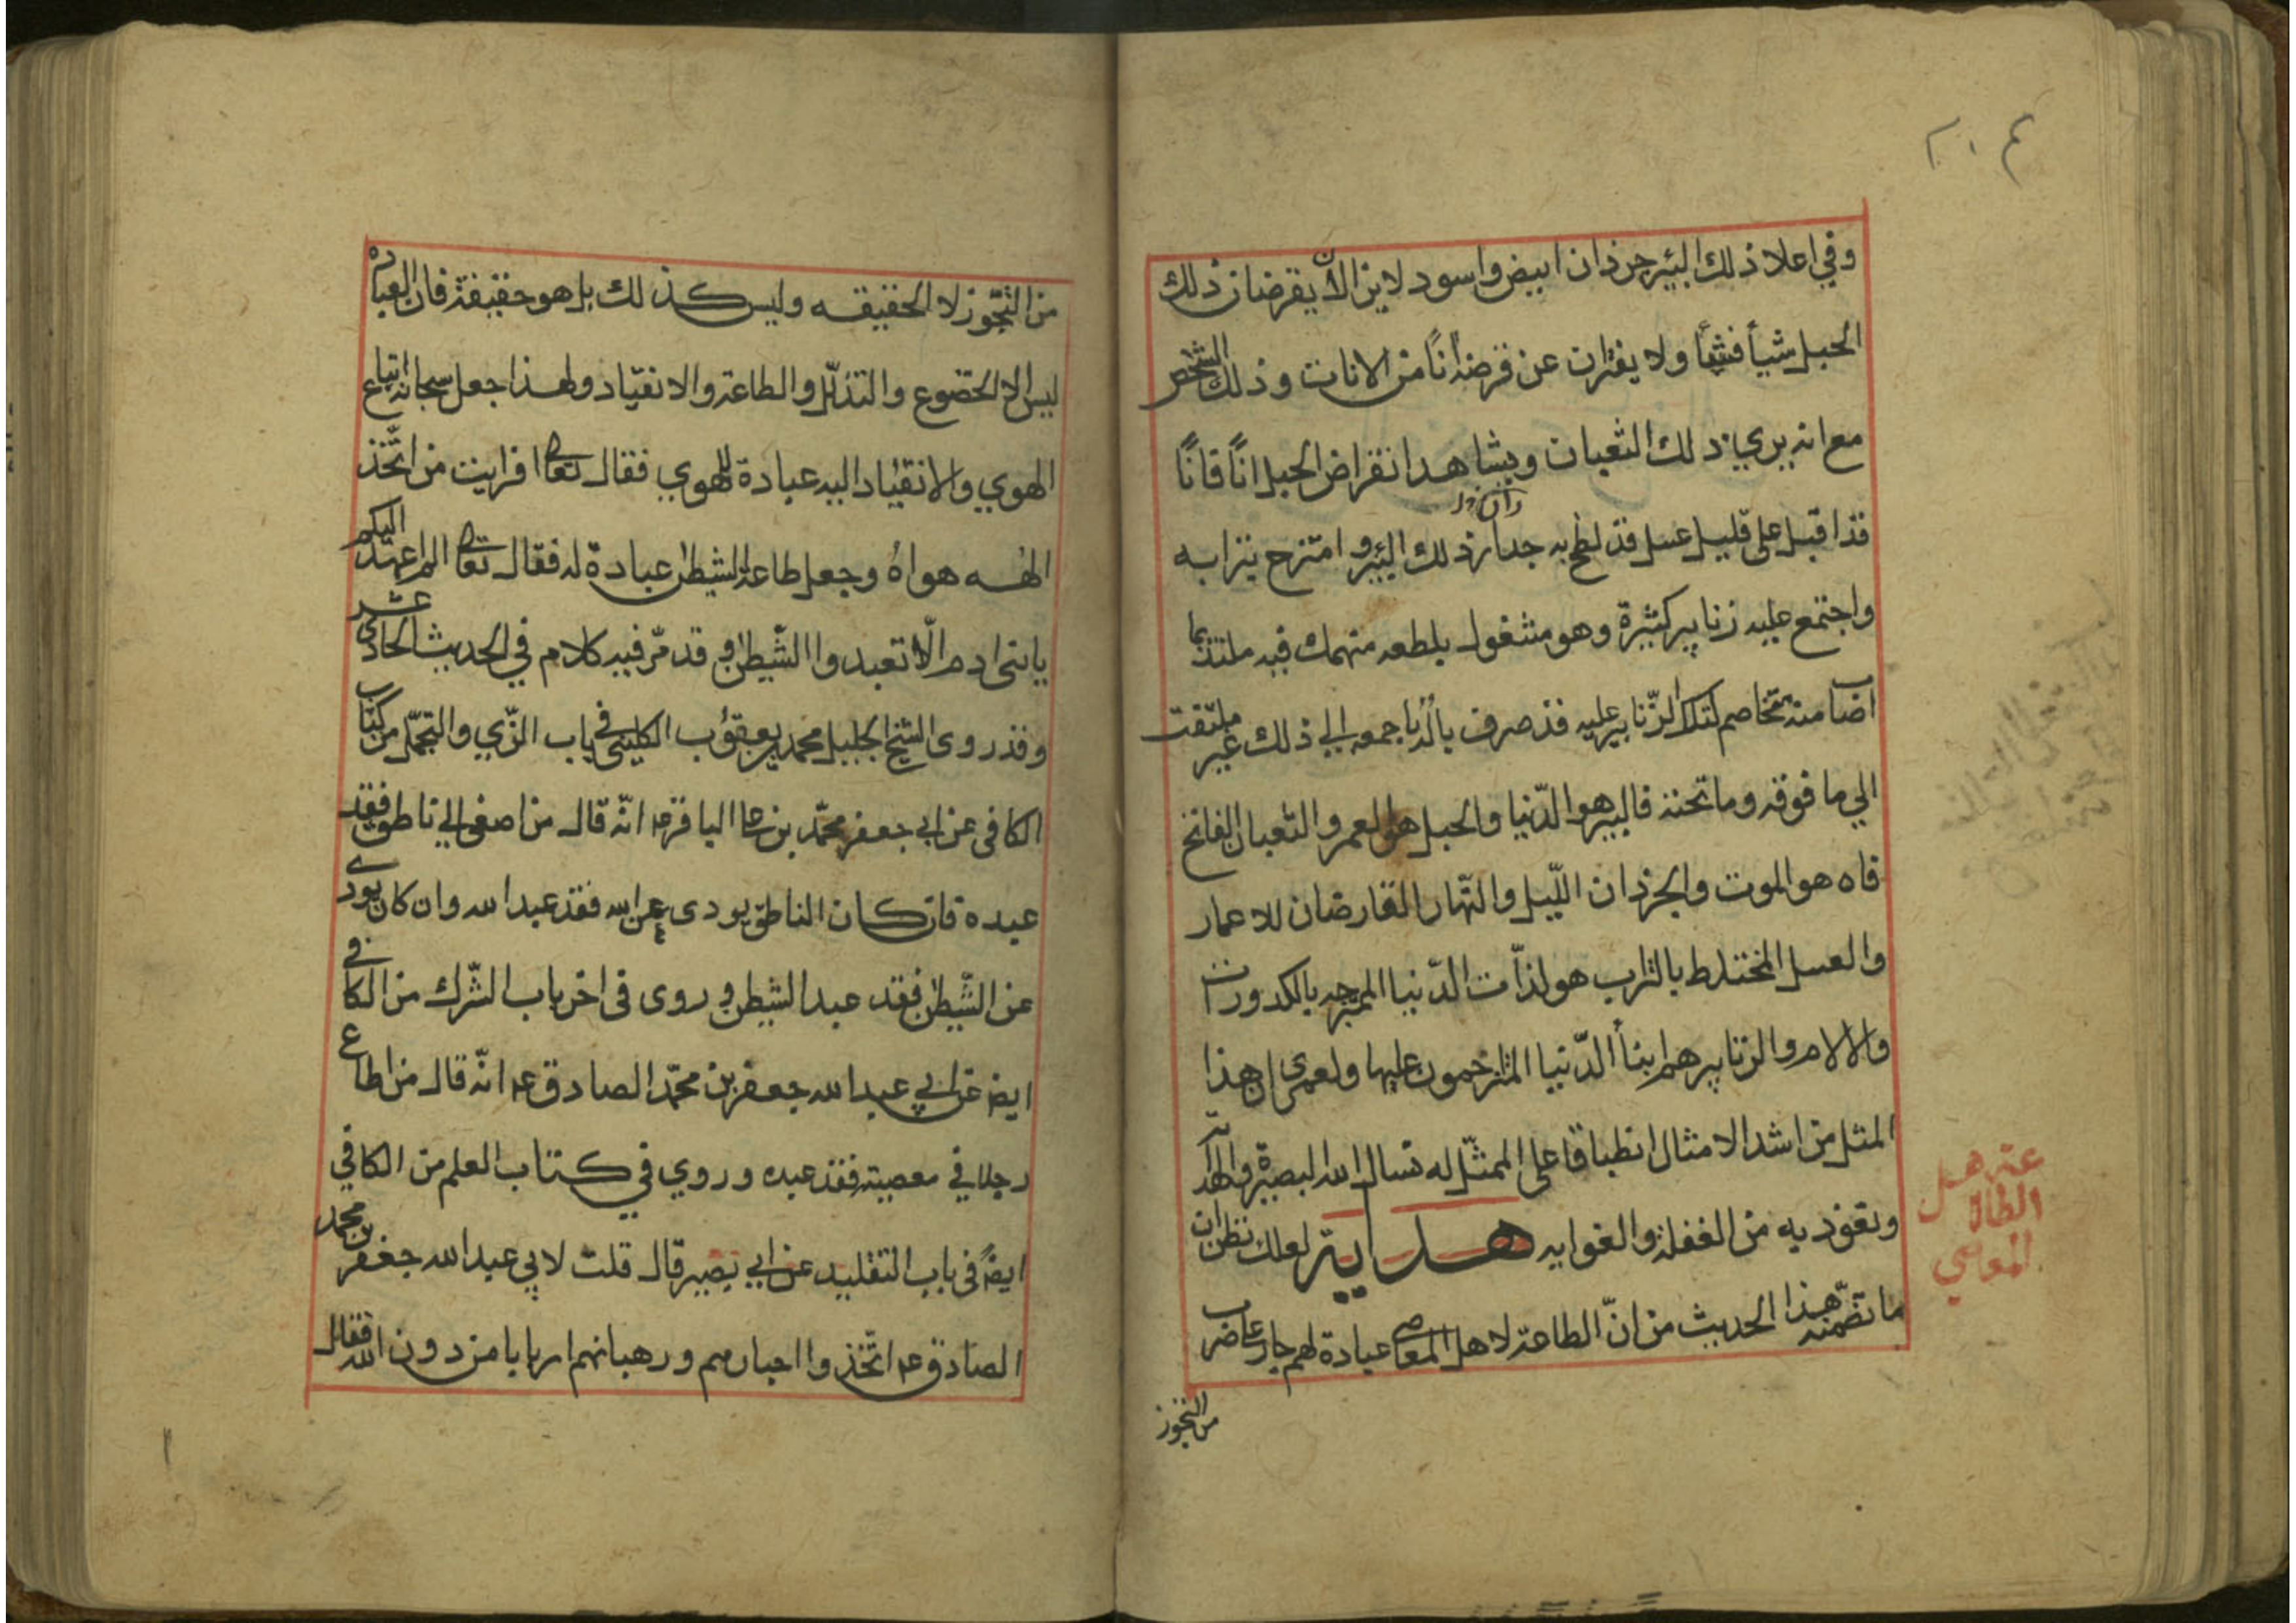 ٢٠٤
وفي اعلا ذلك البئر جرذان ابيض واسود لايزالان يقرضان ذلك
الحبل شيأ فشيأ ولا يفتران عن قرضه اناً من الانات وذلك الشخص
مع انه يري ذلك الثعبان ويشاهد انقراض الحبل اناً فاناً
قد اقبل على قليل عسل قد لطخ به جدار ذلك البئر وامتزج بترابه
واجتمع عليه زنابير كثيرة وهو مشغول بلطعه منهمك فيه ملتذ بما
اصاب منه تخاصم لتلك الزنابير عليه قد صرف باله باجمعه الي ذلك غير ملتفت
الي ما فوقه وما تحته فالبير هو الدّنيا والحبل هو العمر والثعبان الفاتح
فاه هو الموت والجرذان اللّيل والنّهار القارضان للاعمار
والعسل المختلط بالتراب هو لذّات الدّنيا الممتزجه بالكدورات
والالام والزنابير هم ابنأ الدّنيا المتزاحمون عليها ولعمري ان هذا
المثل من اشد الامثال انطباقا على الممثّل له نسال الله البصيرة والهداية
ونعوذ به من الغفلة والغوايه هداية لعلك تظن ان
ما تضمّنه هذا الحديث من انّ الطاعة لاهل المعاصي عبادة لهم جار على ضرب
من التجوز
هل
المعاصي
من التجّوز لا الحقيقه وليس كذلك بل هو حقيقة فان العباده
ليس الا الخضوع والتذلّل والطاعة والانقياد ولهذا جعل سبحانه اتباع
الهوي والانقياد اليه عبادة للهوي فقال تعالى افرايت من اتّخذ
الهه هواه وجعل طاعة الشيطن عبادة له فقال تعالى الم اعهد اليكم
يا بني ادم الّا تعبدوا الشّيطن وقد مرّ فيه كلام في الحديث الحادي عشر
وقد روى الشيخ الجليل محمد بن يعقوب الكليني في باب الزّي والتجمّل من كتاب
الكافي عن ابي جعفر محمّد بن علي الباقر ع انّه قال من اصغى الي ناطق فقد
عبده فان كان الناطق يودي عن الله فقد عبد الله وان كان يودي
عن الشّيطن فقد عبد الشيطن وروى في اخر باب الشّرك من الكافي
ايضا عن ابي عبد الله جعفر بن محمّد الصادق ع انّه قال من اطاع
رجلا في معصيته فقد عبده وروي في كتاب العلم من الكافي
ايضاً في باب التقليد عن ابي بصير قال قلت لابي عبد الله جعفر بن محمد
الصادق ع اتّخذوا احبارهم ورهبانهم اربابا من دون الله فقال